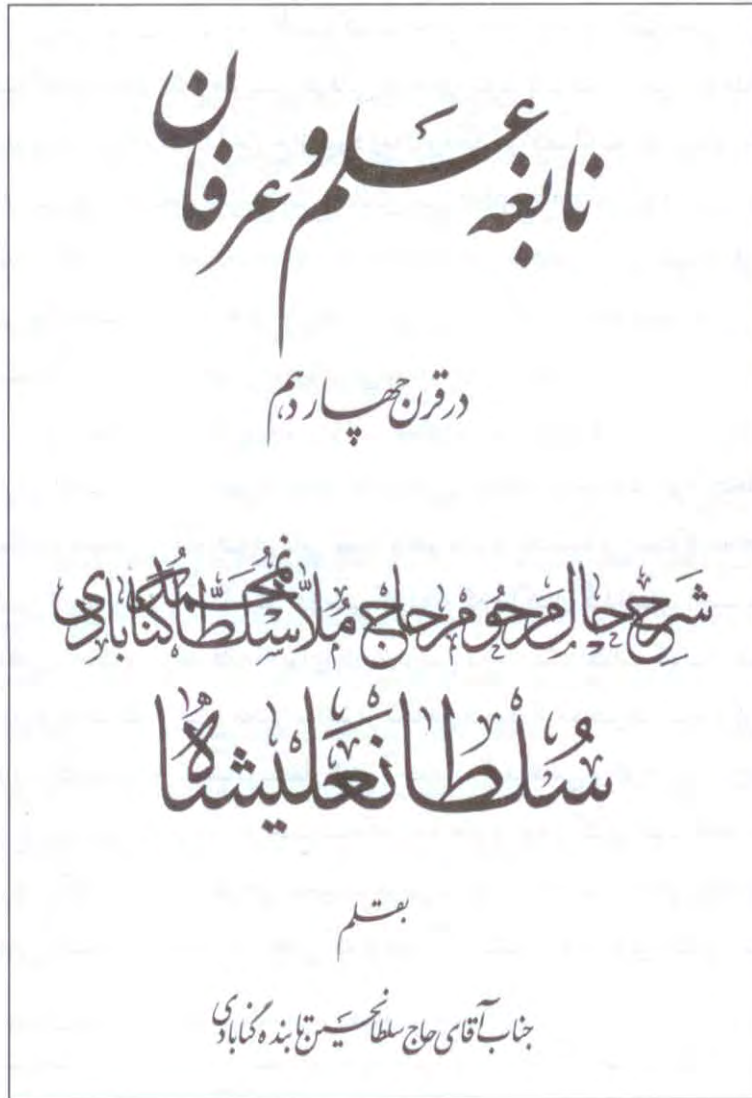 نابغه علم و عرفان
در قرن چهاردهم
شرح حال مرحوم حاج ملا سلطانمحمد گنابادی
سلطانعلیشاه
بقلم
جناب آقای حاج سلطانحسین تابنده گنابادی